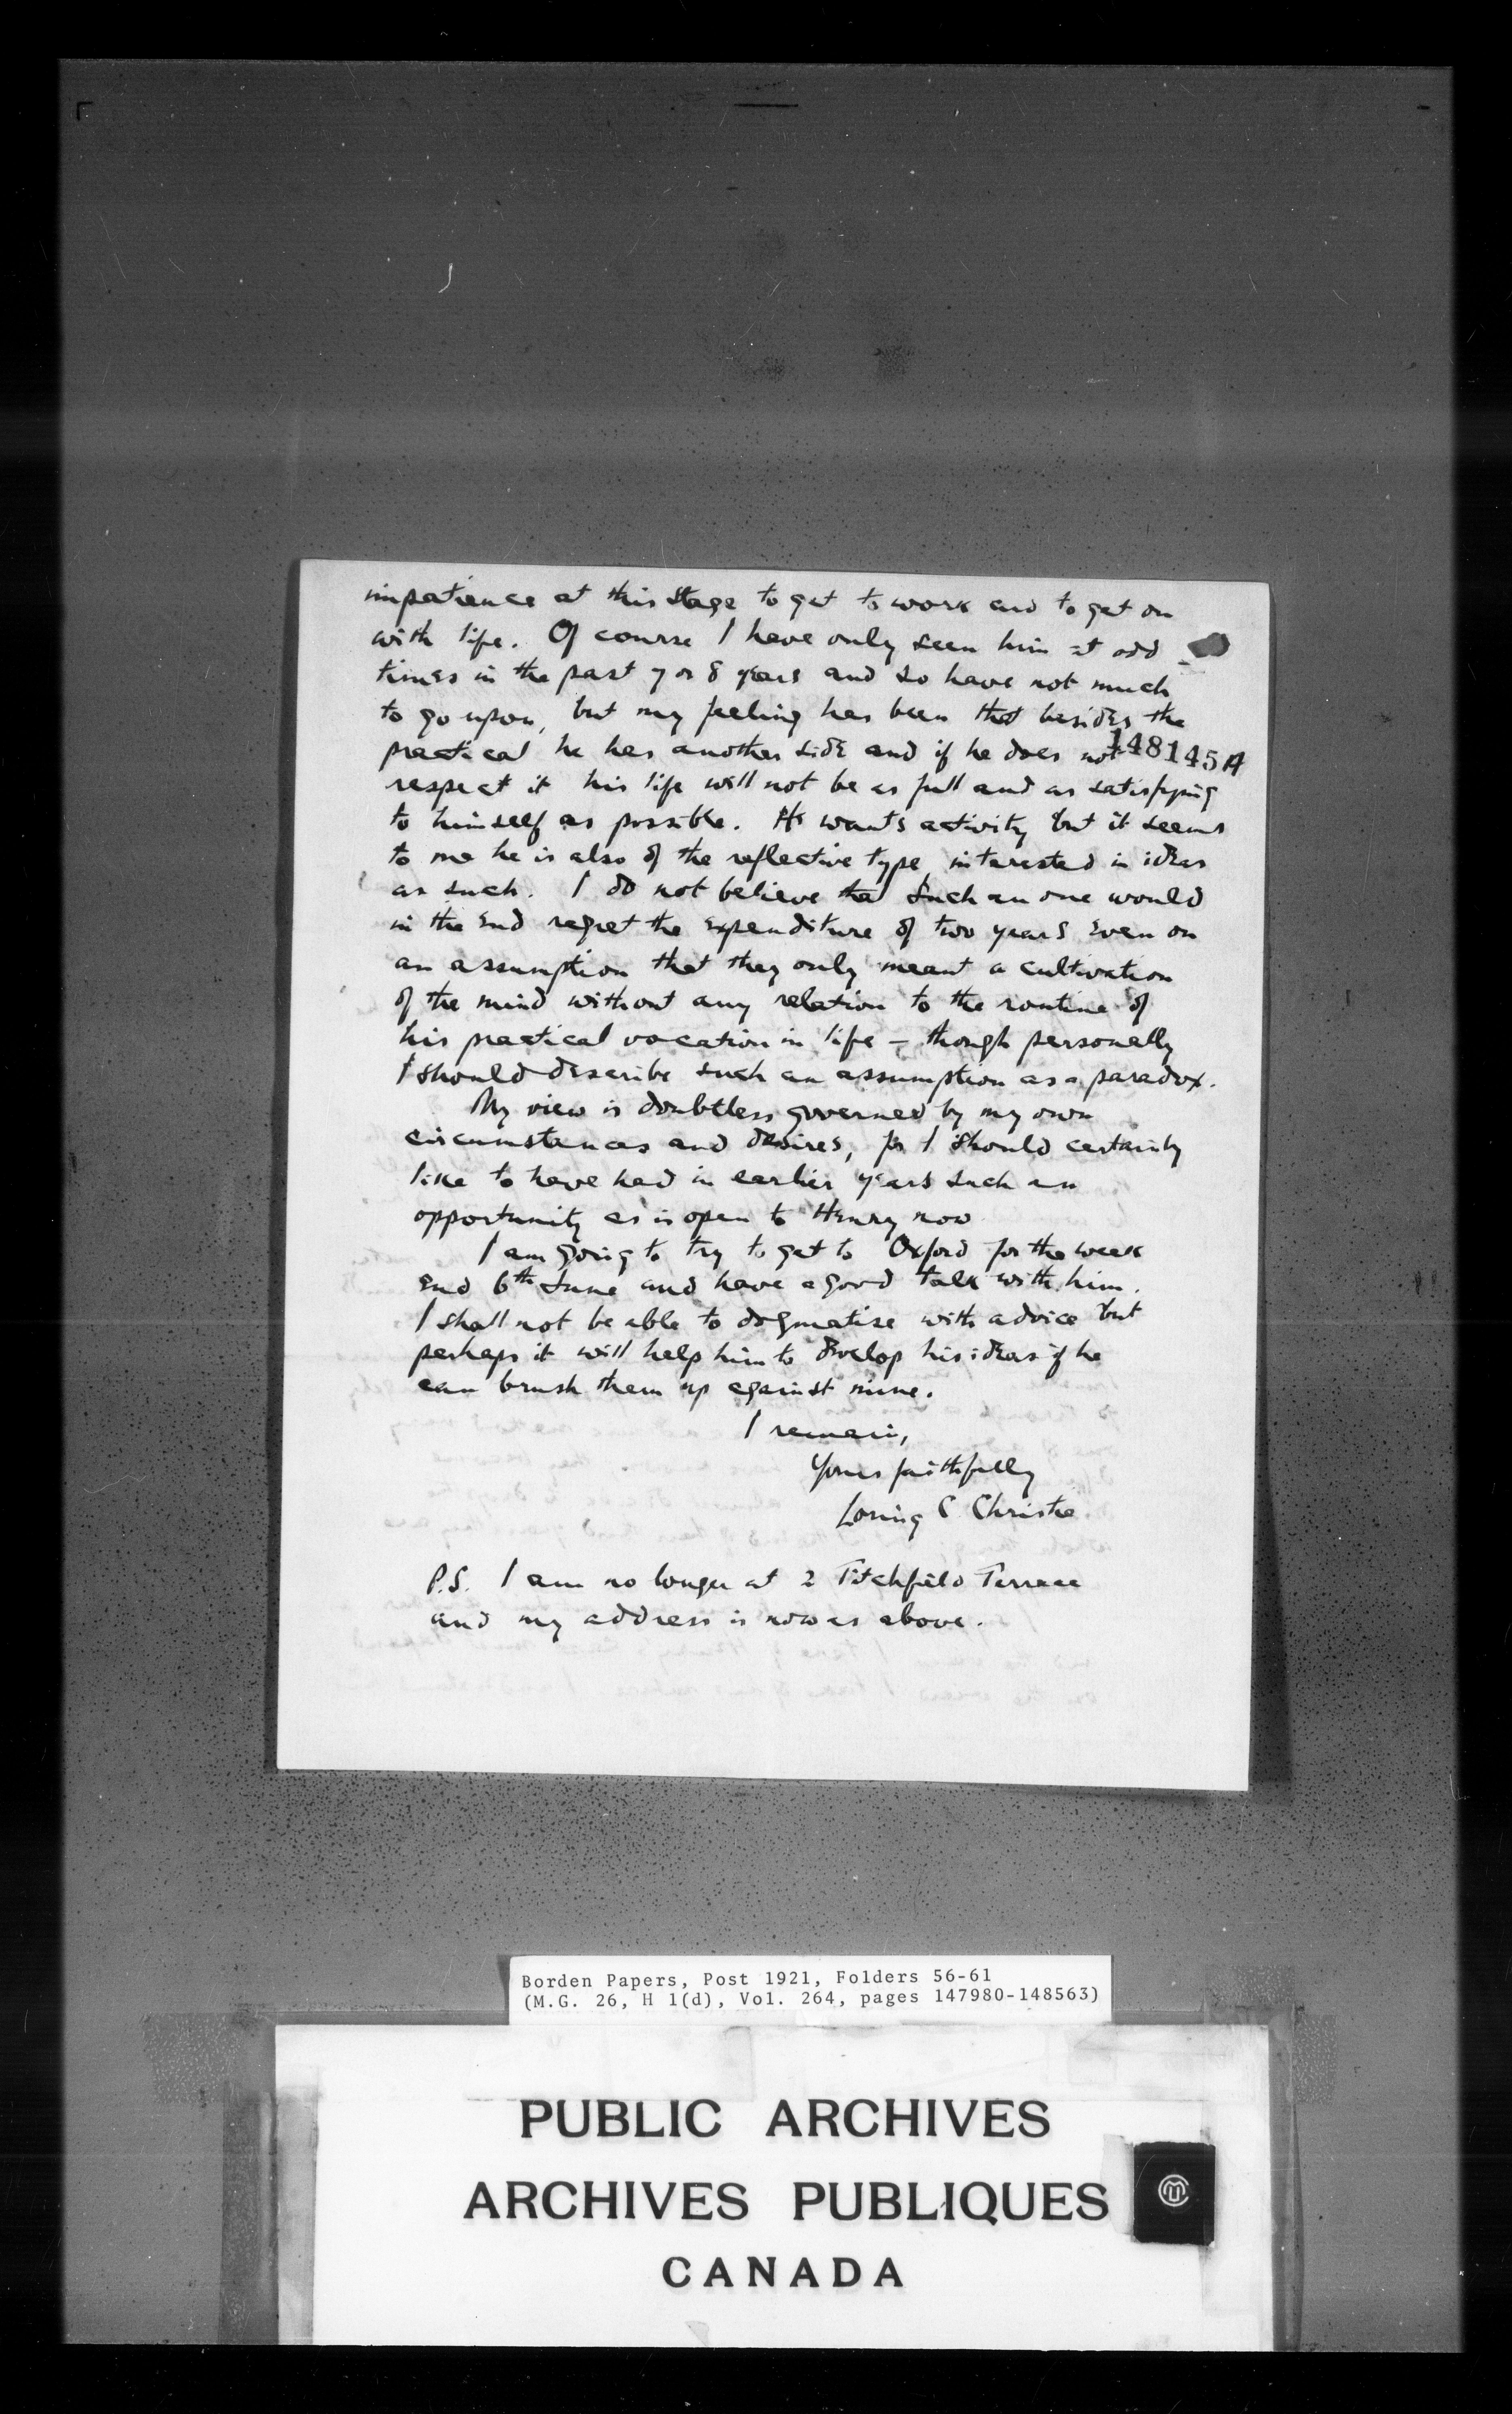 impatience at this stage to get to work and to get on
with life. Of course I have only seen him at odd
times in the past 7 or 8 years and so have not much
to go upon, but my feeling has been that besides the
practical he has another side and if he does not
148145A
respect it his life will not be as full and as satisfying
to himself as possible. He wants activity but it seems
to me he is also of the reflective type interested in ideas
as such. I do not believe that such an one would
in the end regret the expenditure of two years even on
an assumption that they only meant a cultivation
of the mind without any relation to the routine of
his practical vocation in life – though personally
I should describe such an assumption as a paradox.
My view is doubtless governed by my own
circumstances and desires, for I should certainly
like to have had in earlier years such an
opportunity as is open to Henry now
I am going to try to get to Oxford for the week
end 6th June and have a good talk with him.
I shall not be able to dogmatise with advice but
perhaps it will help him to develop his ideas if he
can brush them up against mine.
I remain,
Yours faithfully
Loring C Christie
P.S. I am no longer at 2 Titchfield Terrace
and my address is now as above.
Borden Papers, Post 1921, Folders 56-61
(M.G. 26, H 1(d), Vol. 264, pages 147980-148563)
PUBLIC ARCHIVES
ARCHIVES PUBLIQUES
CANADA